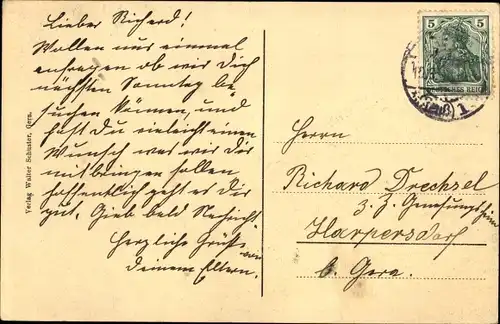 Lieber Richard!
Wollen nur einmal
anfragen ob wir Dich
nächsten Sonntag be-
suchen können, und
hast Du vieleicht einen
Wunsch was wir dir
mitbringen sollen
hoffentlich geht es dir
gut. Gieb bald Nachricht
Herzliche Grüße von
deinen Eltern.
Verlag Walter Schuster, Gera.
5 5
DEUTSCHES REICH
(Reuß) 1
Herrn
Richard Drechsel
z. Z. Genesungsheim
Harpersdorf
b. Gera.